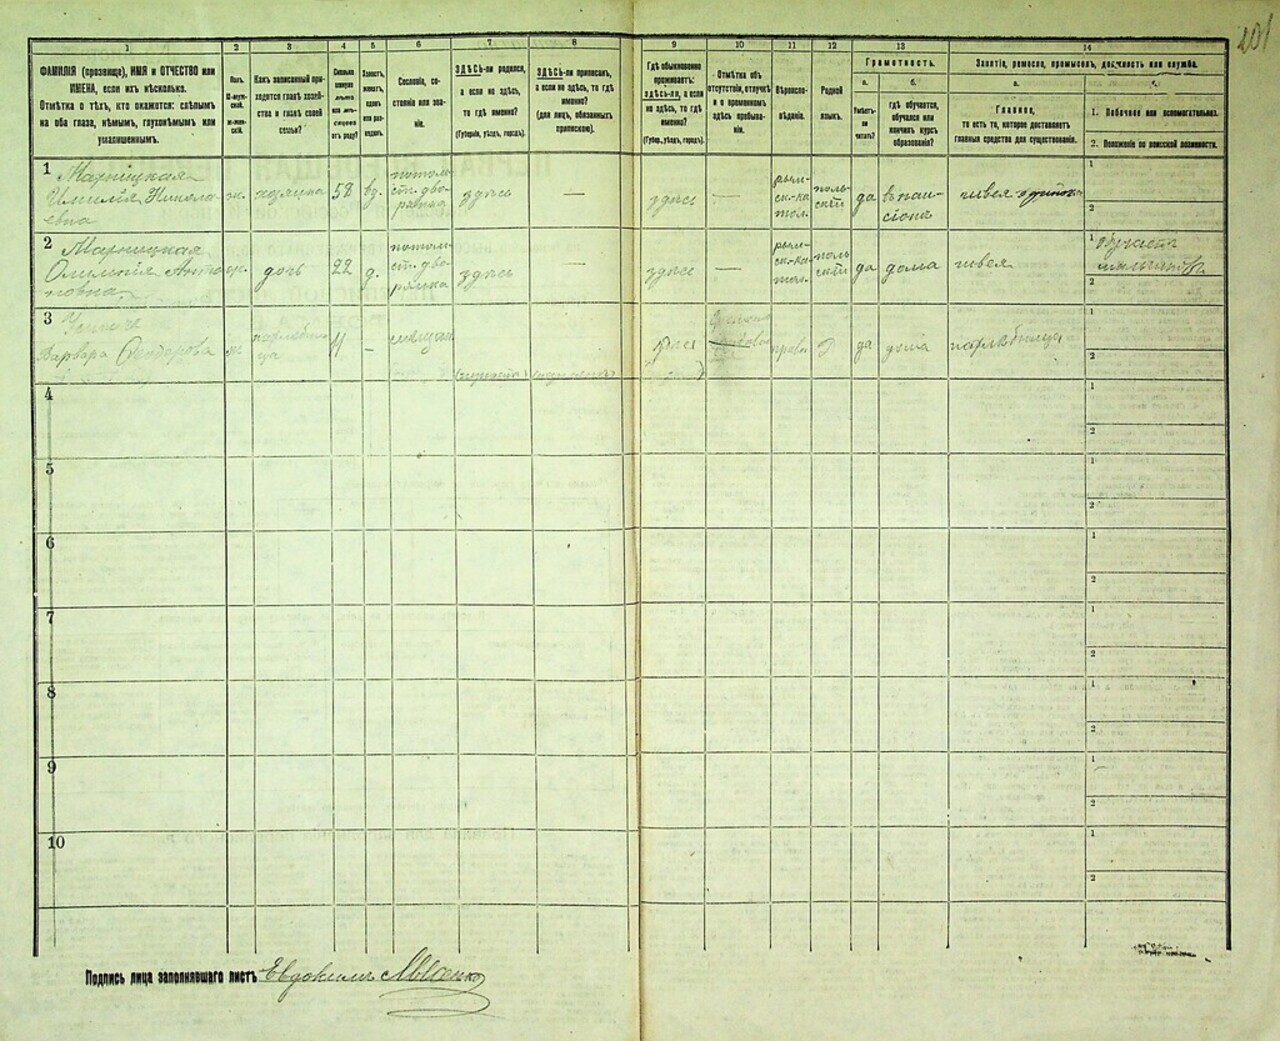 201
1 2 3 4 5 6 7 8 9 10 11 12 13 14
ФАМИЛІЯ (прозвище), ИМЯ и ОТЧЕСТВО или
ИМЕНА, если ихъ нѣсколько.
Отмѣтка о тѣхъ, кто окажется: слѣпымъ
на оба глаза, нѣмымъ, глухонѣмымъ или
умалишеннымъ.
Полъ.
М-муж-
ской.
Ж-жен-
скій.
Какъ записанный при-
ходится главѣ хозяй-
ства и главѣ своей
семьи?
Сколько
минуло
лѣтъ
или мѣ-
сяцевъ
отъ роду?
Холостъ,
женатъ,
вдовъ
или раз-
веденъ.
Сословіе, со-
стояніе или зва-
ніе.
ЗДѢСЬ-ли родился,
а если не здѣсь,
то гдѣ именно?
(Губернія, уѣздъ, городъ).
ЗДѢСЬ-ли приписанъ,
а если не здѣсь, то гдѣ
именно?
(для лицъ, обязанныхъ
припискою).
Гдѣ обыкновенно
проживаетъ:
здѣсь-ли, а если
не здѣсь, то гдѣ
именно?
(Губер., уѣздъ, городъ).
Отмѣтка объ
отсутствіи, отлучкѣ
и о временномъ
здѣсь пребыва-
ніи.
Вѣроиспо-
вѣданіе.
Родной
языкъ.
Грамотность.
а.
Умѣетъ-
ли
читать?
б.
гдѣ обучается,
обучался или
кончилъ курсъ
образованія?
Занятіе, ремесло, промыселъ, должность или служба.
а.
Главное,
то есть то, которое доставляетъ
главныя средства для существованія.
1. Побочное или вспомогательное.
2. Положеніе по воинской повинности.
1
Марницкая
Эмилія Никола-
евна
ж.
хозяйка
58
вд.
потом-
ст. дво-
рянка
здѣсь
—
здѣсь
—
рим-
ск.-ка
тол.
поль-
скій
да
въ пан-
сіонѣ
швея
1
2
2
Марницкая
Олимпія Анто-
новна
ж.
дочь
22
д.
потом-
ст. дво-
рянка
здѣсь
—
здѣсь
—
рим-
ск.-ка
тол.
поль
скій
да
дома
швея
1
2
3
Варвара Ѳеодорова
ж
—
здѣсь
да
дома
1
2
4
1
2
5
1
2
6
1
2
7
1
2
8
1
2
9
1
2
10
1
2
Подпись лица заполнявшаго листъ Евдокимъ